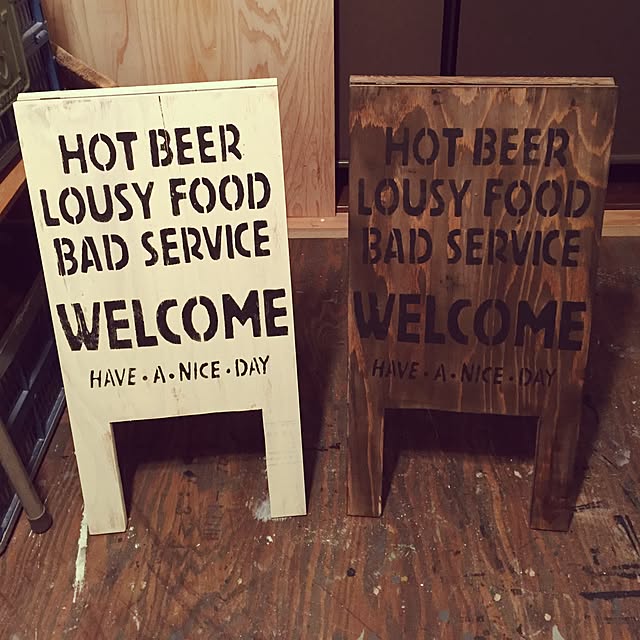 HOT BEER
LOUSY FOOD
BAD SERVICE
WELCOME
HAVE • A • NICE • DAY
HOT BEER
LOUSY FOOD
BAD SERVICE
WELCOME
HAVE • A • NICE • DAY